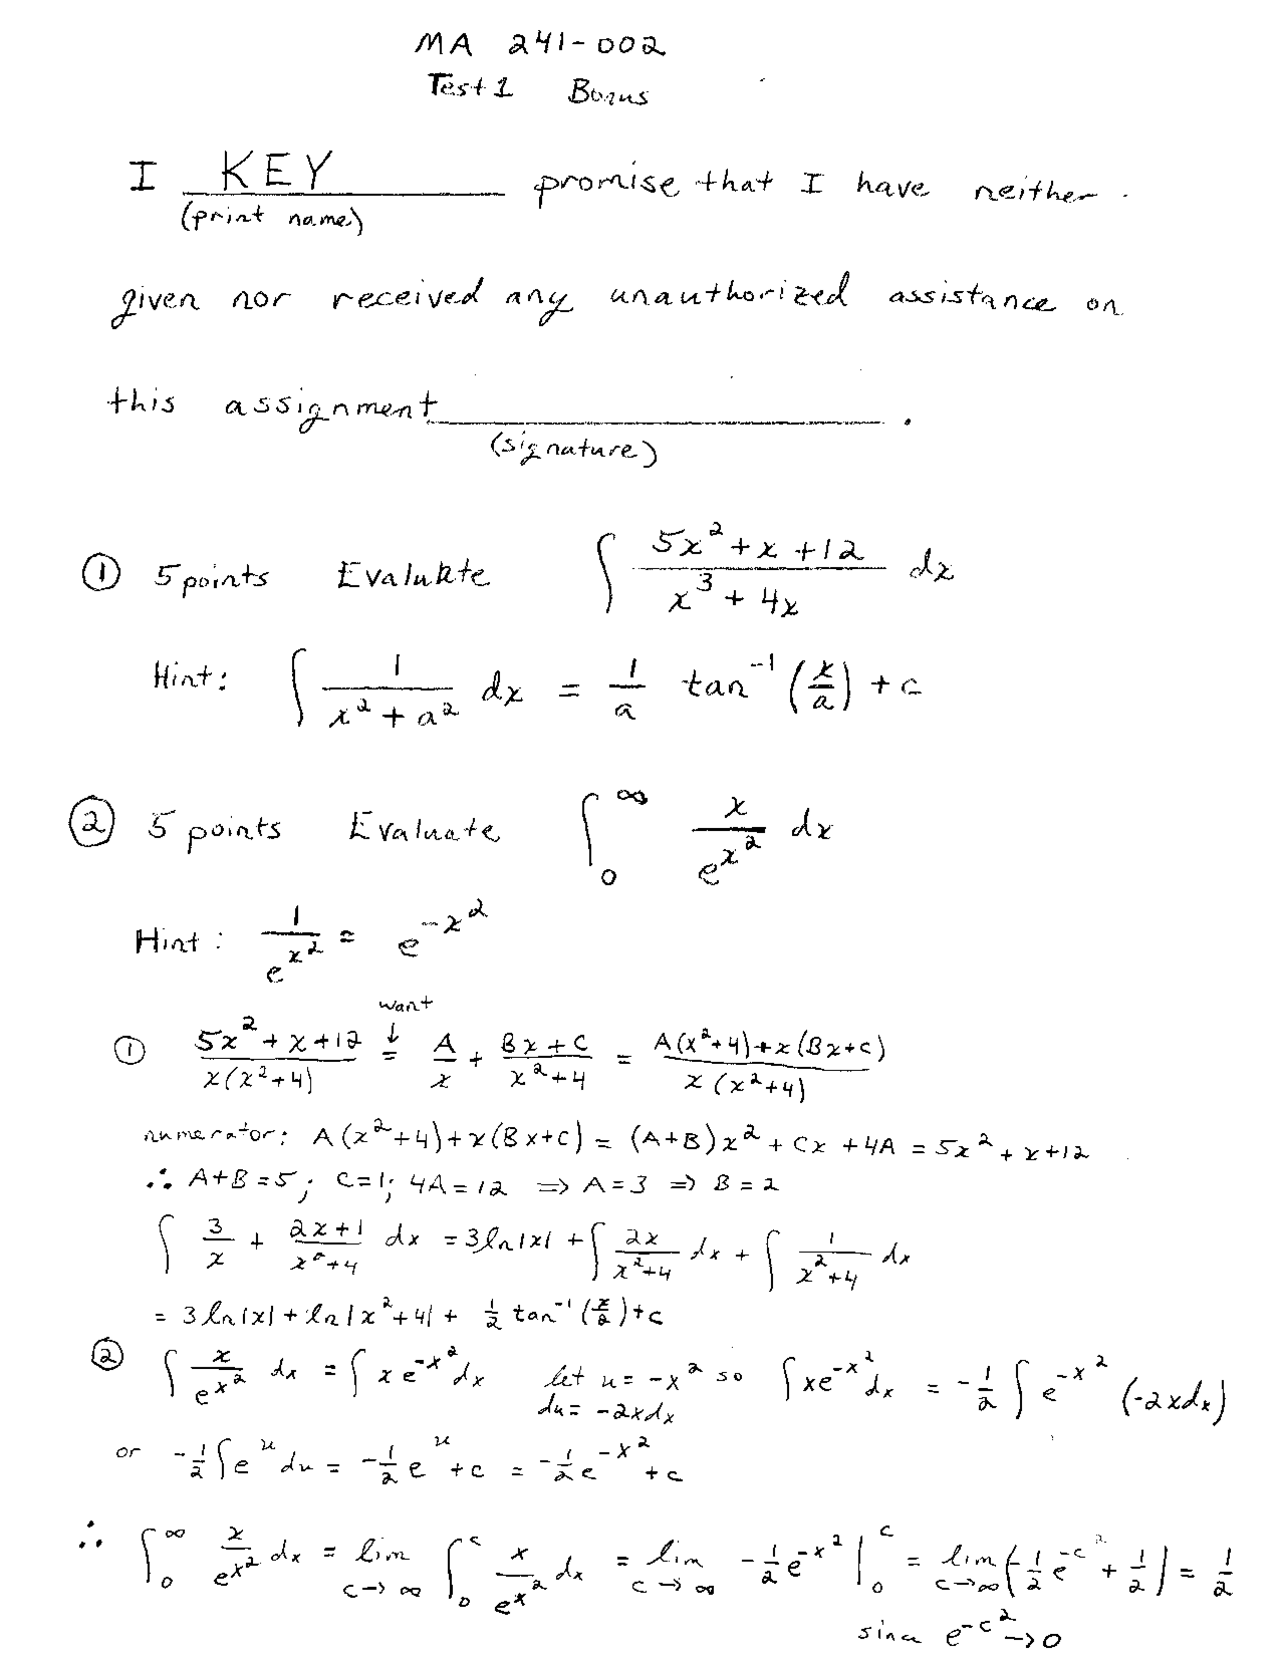 MA 241-002
Test 1 Bonus
I KEY promise that I have neither
(print name)
given nor received any unauthorized assistance on
this assignment ____________.
(signature)
① 5 points Evaluate ∫ (5x² + x + 12)/(x³ + 4x) dx
Hint: ∫ 1/(x² + a²) dx = 1/a tan⁻¹(x/a) + c
② 5 points Evaluate ∫₀^∞ x/e^(x²) dx
Hint: 1/e^(x²) = e^(-x²)
want
① (5x² + x + 12)/(x(x²+4)) ↓= A/x + (Bx + C)/(x²+4) = (A(x²+4) + x(Bx+C))/(x(x²+4))
numerator: A(x²+4) + x(Bx+C) = (A+B)x² + Cx + 4A = 5x² + x + 12
∴ A+B=5; C=1; 4A=12 ⇒ A=3 ⇒ B=2
∫ 3/x + (2x+1)/(x²+4) dx = 3ln|x| + ∫ 2x/(x²+4) dx + ∫ 1/(x²+4) dx
= 3ln|x| + ln|x²+4| + 1/2 tan⁻¹(x/2) + c
② ∫ x/e^(x²) dx = ∫ x e^(-x²) dx let u = -x² so ∫ xe^(-x²) dx = -1/2 ∫ e^(-x²) (-2xdx)
du = -2xdx
or -1/2 ∫ e^u du = -1/2 e^u + c = -1/2 e^(-x²) + c
∴ ∫₀^∞ x/e^(x²) dx = lim c→∞ ∫₀^c x/e^(x²) dx = lim c→∞ -1/2 e^(-x²) |₀^c = lim c→∞ (-1/2 e^(-c²) + 1/2) = 1/2
since e^(-c²) → 0